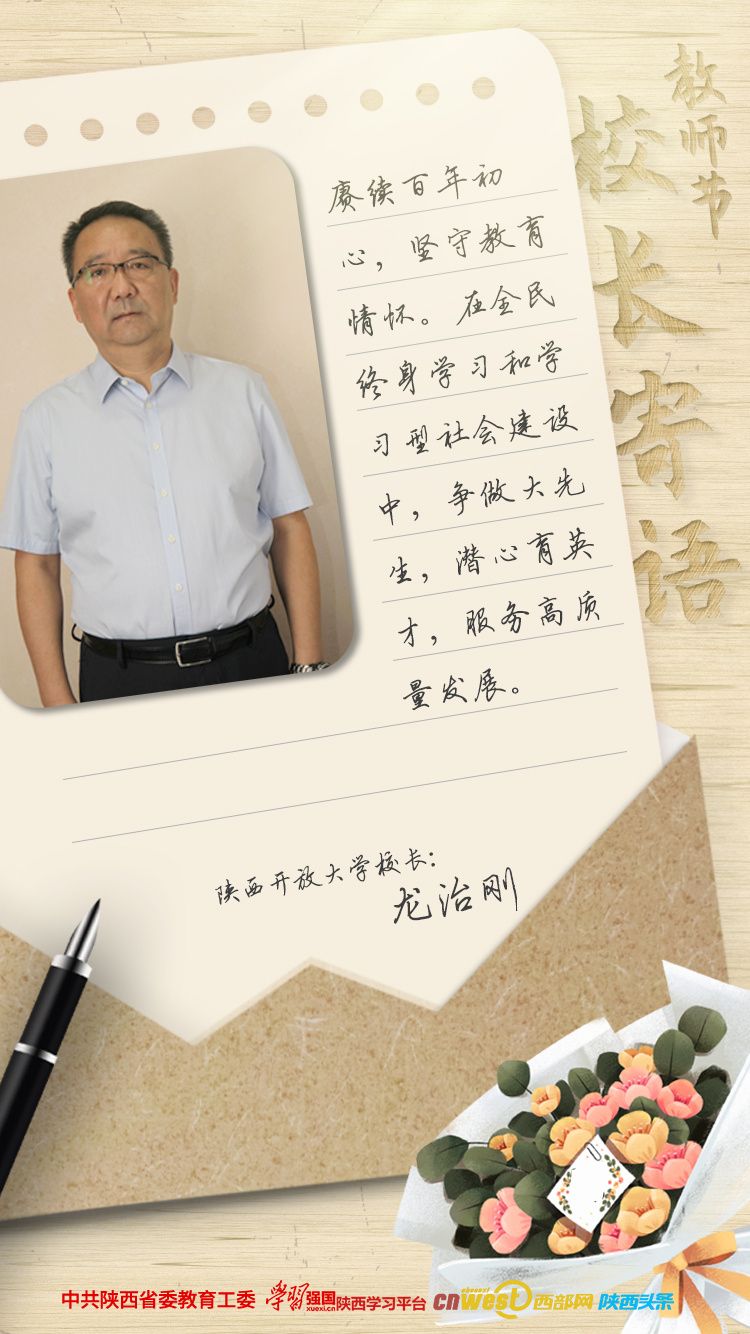 教师节
校长寄语
赓续百年初
心，坚守教育
情怀。在全民
终身学习和学
习型社会建设
中，争做大先
生，潜心育英
才，服务高质
量发展。
陕西开放大学校长：
龙治刚
中共陕西省委教育工委 学习强国 xuexi.cn 陕西学习平台 cnwest 西部网 陕西头条